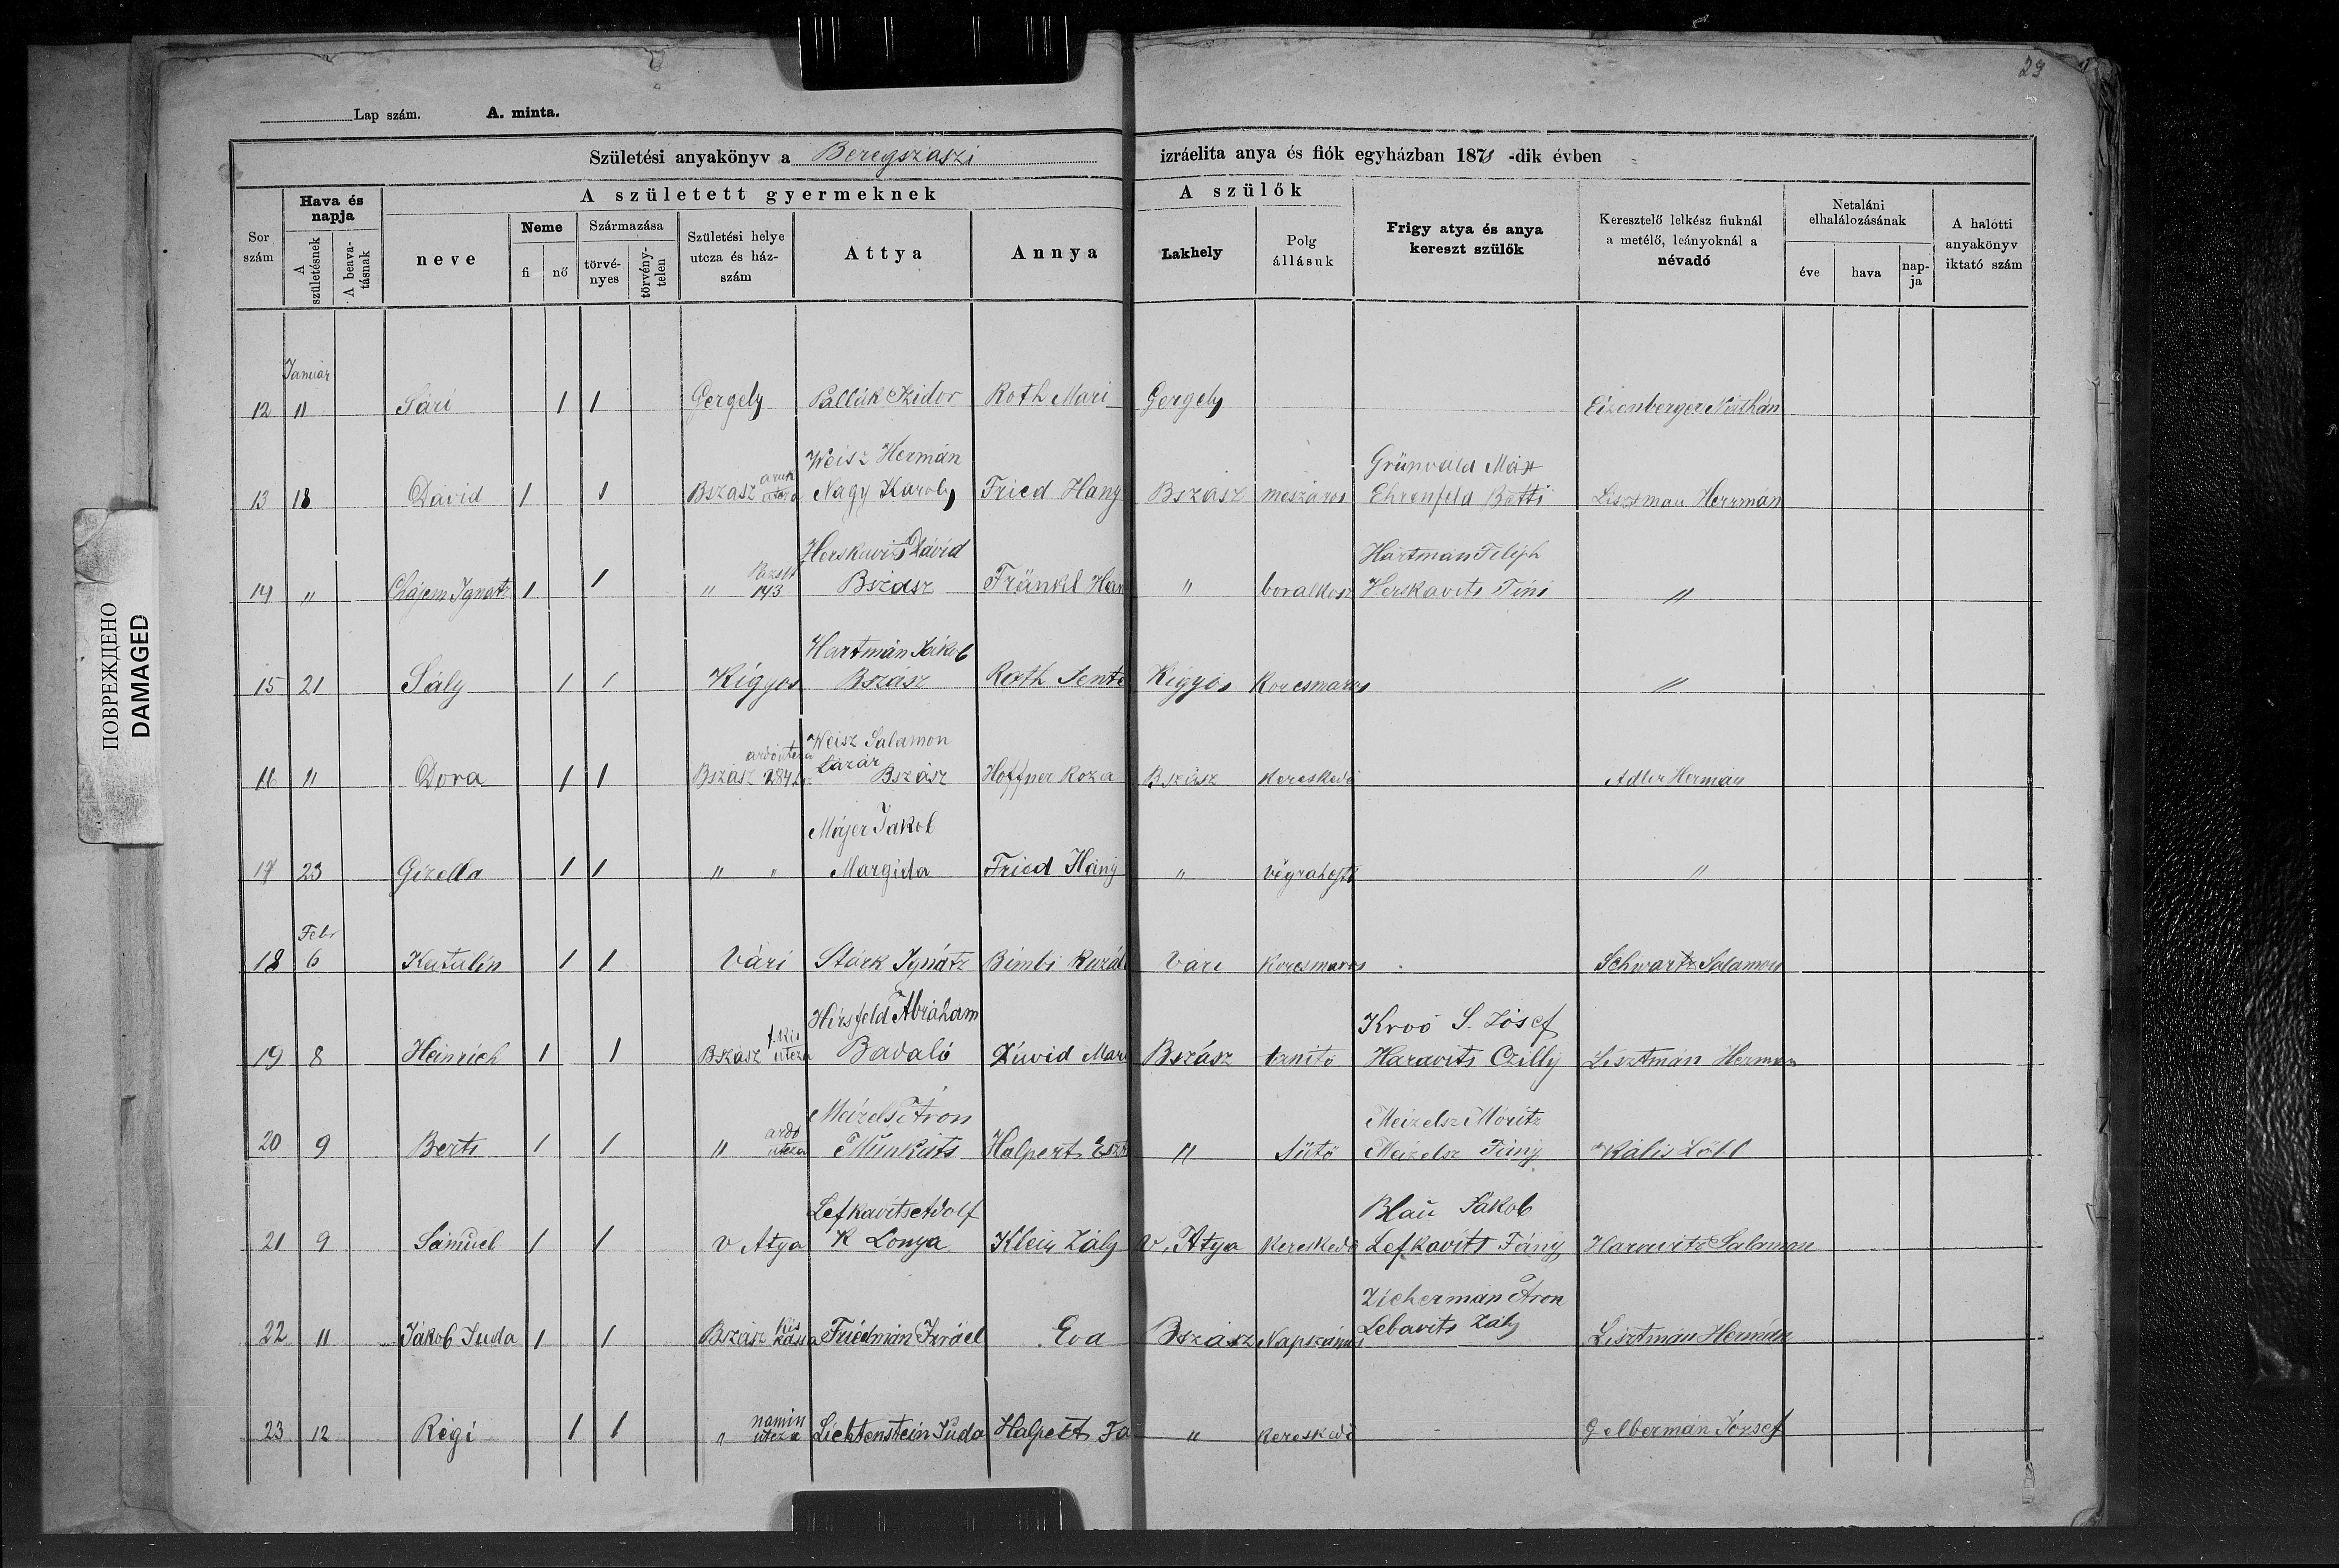 29
Lap szám. A. minta.
Születési anyakönyv a Beregszaszi izráelita anya és fiók egyházban 1878-dik évben
A született gyermeknek A szülők
Sor szám
Hava és napja
A születésnek
A beavatásnak
neve
Neme
fi nő
Származása
törvényes
törvénytelen
Születési helye utcza és házszám
Attya
Annya
Lakhely
Polg állásuk
Frigy atya és anya kereszt szülők
Keresztelő lelkész fiuknál a metélő, leányoknál a névadó
Netaláni elhalálozásának
éve hava napja
A halotti anyakönyv iktató szám
Január
12 11 Sári 1 1 Gergely Pallák Izidor Roth Mari Gergely Eizenberger Náthán
Weisz Hermán Grünvald Max
13 18 Dávid 1 1 Bszasz utcza Nagy Karoly Fried Hany Bszász meszáros Ehrenfeld Betti Lisztmau Herrmán
Herskavits Dávid Hártman Filéph
14 " Chájem Ignatz 1 1 " 143 Bszász Fränkl Han " boralkosz Herskavits Tini "
Hartmán Jákob
15 21 Sály 1 1 Kígyos Bszász Roth Jente Kigyos Korcsmaros "
Weisz Salamon
ardó utcza Lázár
16 " Dora 1 1 Bszász 284 Bszász Hoffner Roza Bszász Kereskedő Adler Hermán
Májer Jakob
17 23 Gizella 1 1 " " Margida Fried Hány " végrahejtó "
Febr
18 6 Katalin 1 1 Vári Stárk Ignátz Bimbi Vari Korcsmaros Schwartz Salamon
Hirsfeld Abráham Kroó S. Jósef
19 8 Heinrich 1 1 Bszász f. Kis utcza Badaló Dávid Mari Bszász tanitó Haravits Czilly Lisztmán Herman
Meizels Áron Meizelsz Móritz
20 9 Berti 1 1 " ardó utcza Munkats Halpert Eszt " Sütő Meizelsz Fány Kalis Löbl
Lefkavits Adolf Blau Jákob
21 9 Sámuel 1 1 v Atya K Lonya Klein Zály v. Atya Kereskedő Lefkavits Fány Haravitz Salamon
Zicherman Áron
22 11 Jákob Juda 1 1 Bszász kis kassa Friedmán Izráel Eva Bszász Napszámos Lebavits Zály Lisztmán Hermán
23 12 Régi 1 1 " namin utcza Lichtenstein Juda Halpert Fa " Kereskedő Gelbermán József
ПОВРЕЖДЕНО
DAMAGED